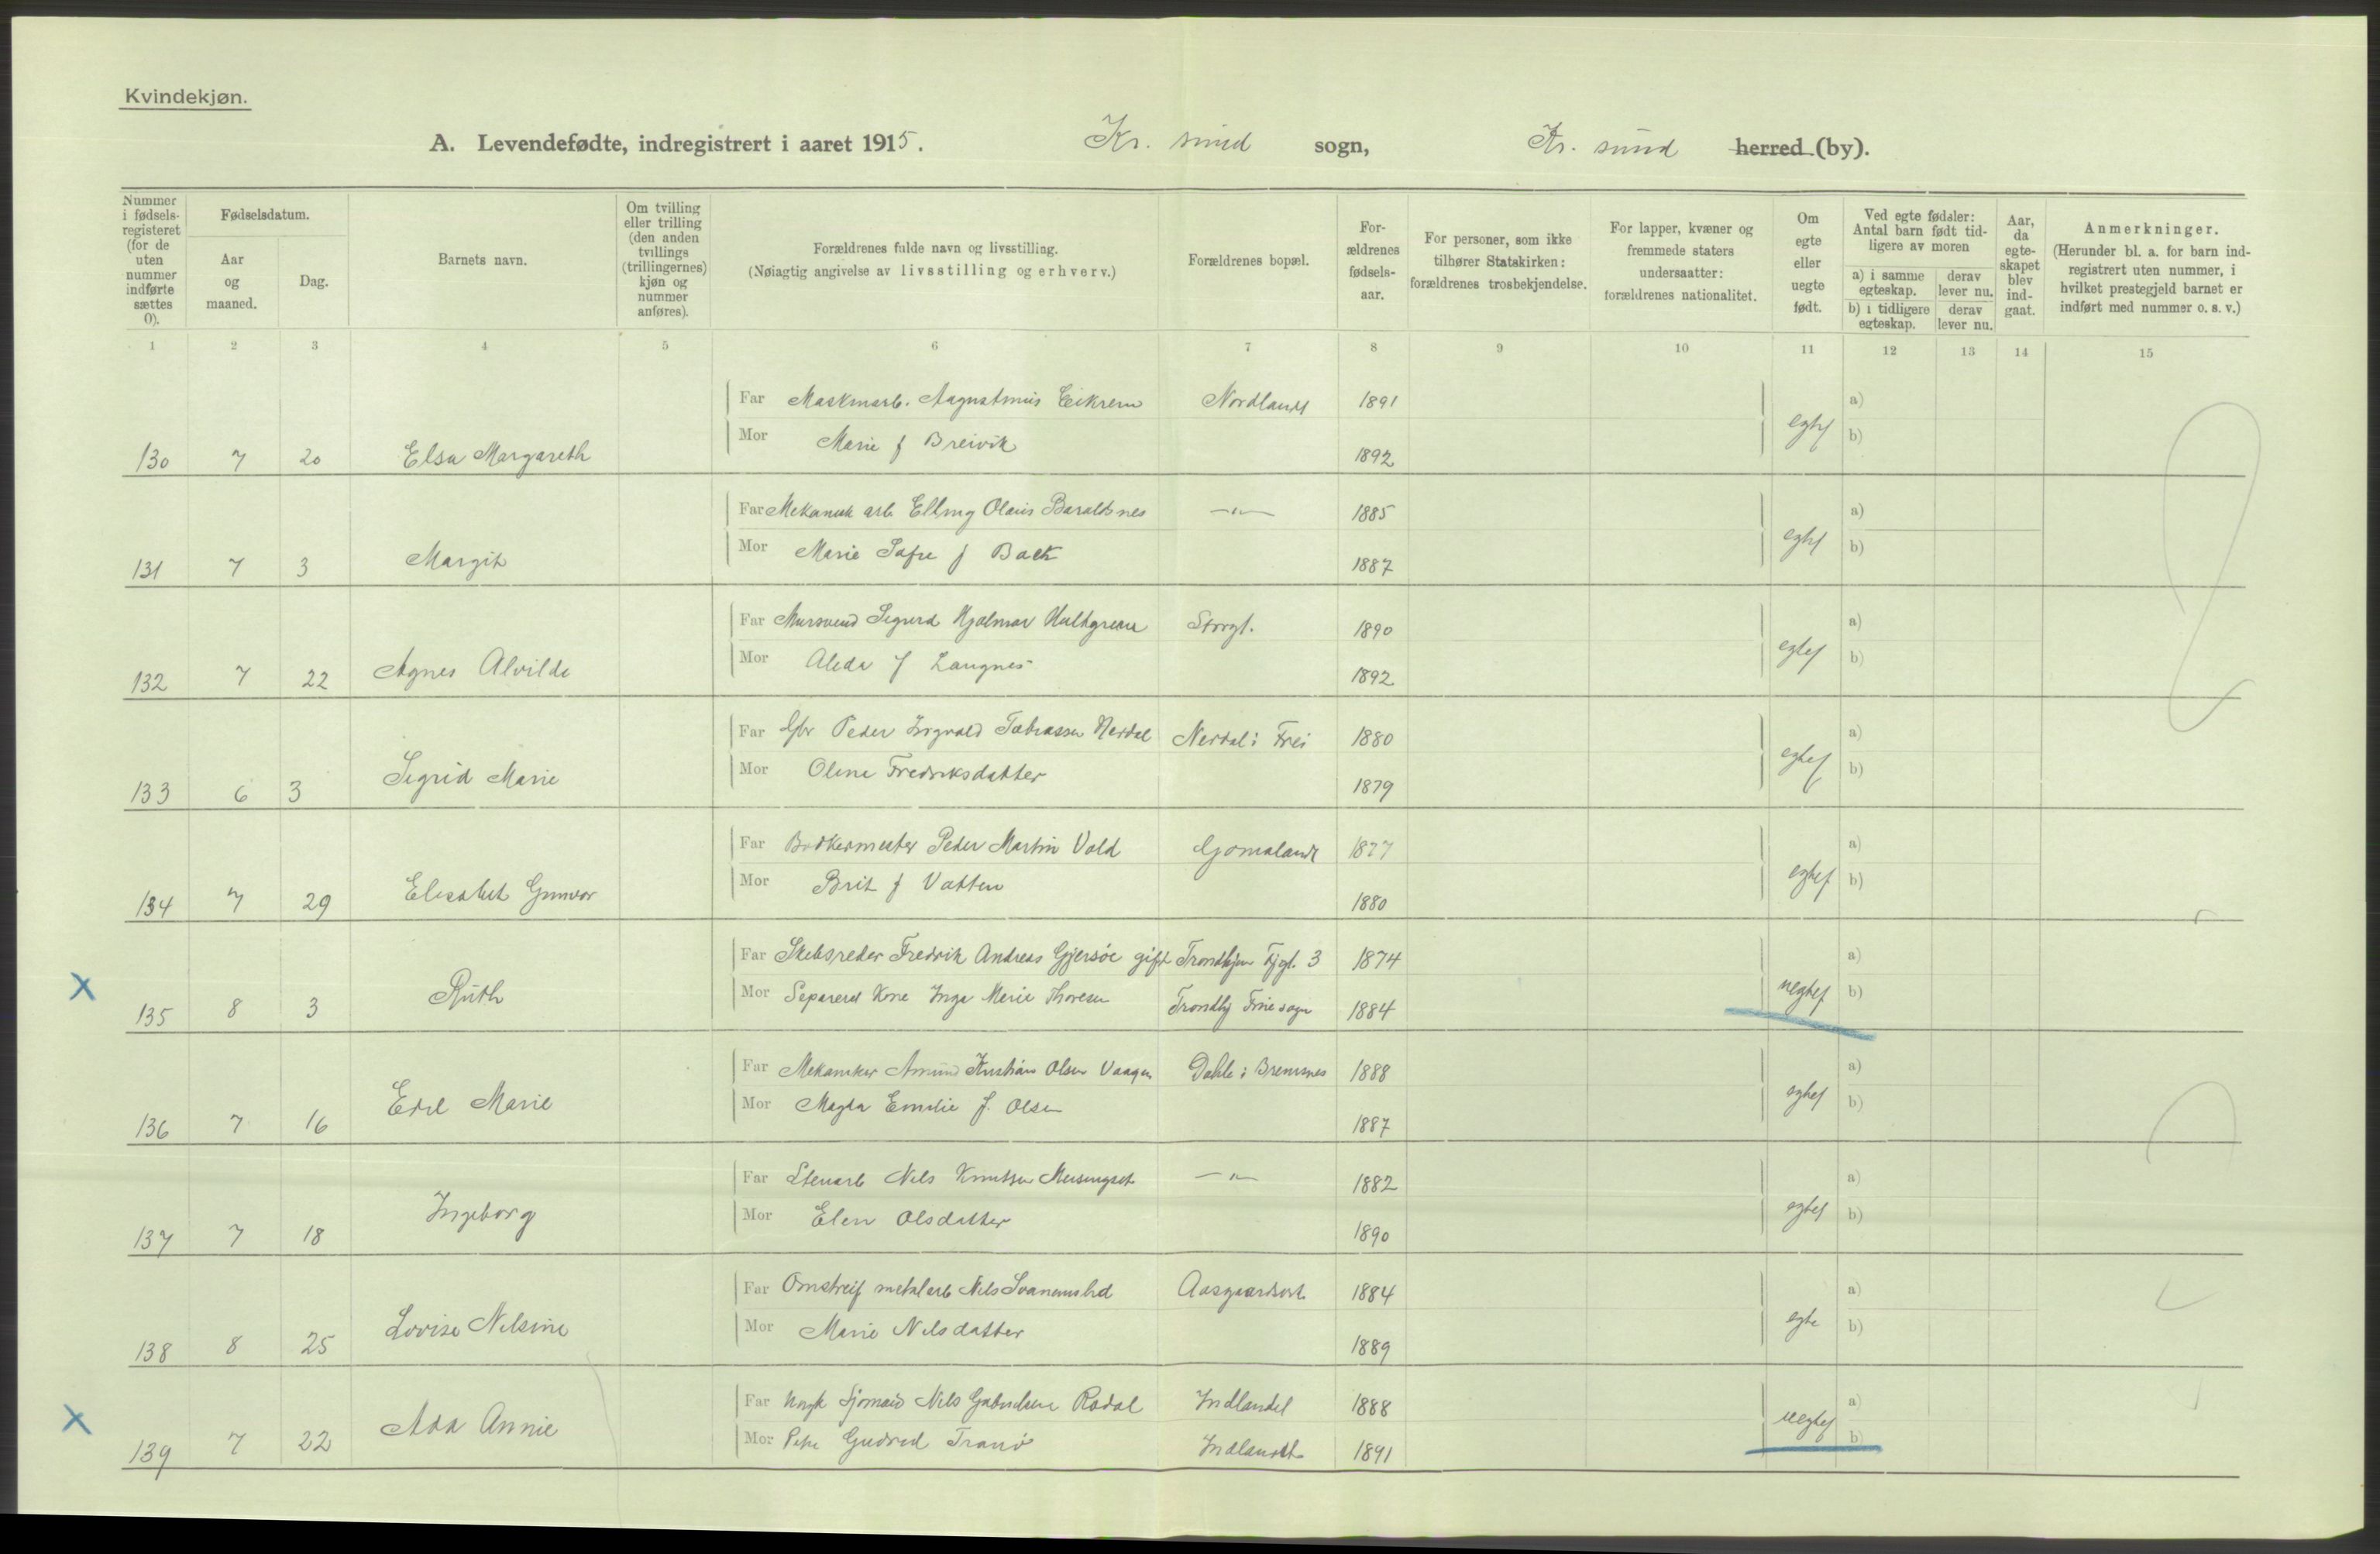 Kvindekjøn.
A. Levendefødte, indregistrert i aaret 1915. Kr. sund sogn, Kr. sund herred (by).
Nummer i fødsels-registeret (for de uten nummer indførte sættes 0).
Fødselsdatum.
Aar og maaned.
Dag.
Barnets navn.
Om tvilling eller trilling (den anden tvillings (trillingernes) kjøn og nummer anføres).
Forældrenes fulde navn og livsstilling.
(Nøiagtig angivelse av livsstilling og erhverv.)
Forældrenes bopæl.
For-ældrenes fødsels-aar.
For personer, som ikke tilhører Statskirken: forældrenes trosbekjendelse.
For lapper, kvæner og fremmede staters undersaatter: forældrenes nationalitet.
Om egte eller uegte født.
Ved egte fødsler: Antal barn født tid-ligere av moren
a) i samme egteskap. derav lever nu.
b) i tidligere egteskap. derav lever nu.
Aar, da egte-skapet blev ind-gaat.
Anmerkninger.
(Herunder bl. a. for barn ind-registrert uten nummer, i hvilket prestegjeld barnet er indført med nummer o. s. v.)
1 2 3 4 5 6 7 8 9 10 11 12 13 14 15
Far Maskinarb. Augustinus Eikrem Nordlandt 1891 a)
Mor Marie f Breivik 1892 egtef b)
130 7 20 Elsa Margareth
Far Mekanik arb Elling Olaus Baraldsnes —"— 1885 a)
Mor Marie f Back 1887 egtef b)
131 7 3 Margit
Far Mursvend Sigurd Hjalmar Hultgreen Storgt. 1890 a)
Mor Aleda f Langnes 1892 egtef b)
132 7 22 Agnes Alvilde
Far Gbr Peder Ingvald Tobiassen Nerdal Nerdal i Frei 1880 a)
Mor Oline Fredriksdatter 1879 egtef b)
133 6 3 Sigrid Marie
Far Bødkermester Peder Martin Vold Gomalandt 1877 a)
Mor Brit f Vatten 1880 egtef b)
134 7 29 Elisabet Gunvor
Far Skibsreder Fredrik Andreas Gjersöe gift Trondhjem Fjgt. 3 1874 a)
Mor Separeret Kone Inga Marie Thoresen Trondhj Frue sogn 1884 uegtef b)
X 135 8 3 Ruth
Far Mekaniker Amund Kristian Olsen Vaagen Dahle i Bremsnes 1888 a)
Mor Magda Emilie f. Olsen 1887 egtef b)
136 7 16 Edel Marie
Far Stenarb Nils Knutsen Meisingset —"— 1882 a)
Mor Elen Olsdatter 1890 egtef b)
137 7 18 Ingeborg
Far Omstreif metalarb Nils Svanemslid Aasgaardsvt 1884 a)
Mor Marie Nilsdatter 1889 egte b)
138 8 25 Lovise Nilsine
Far Ungk Sjømand Nils Gabrielsen Rødal Indlandet 1888 a)
Mor Pike Gudrud Tranö Indlandet 1891 uegtef b)
X 139 7 22 Ada Annie